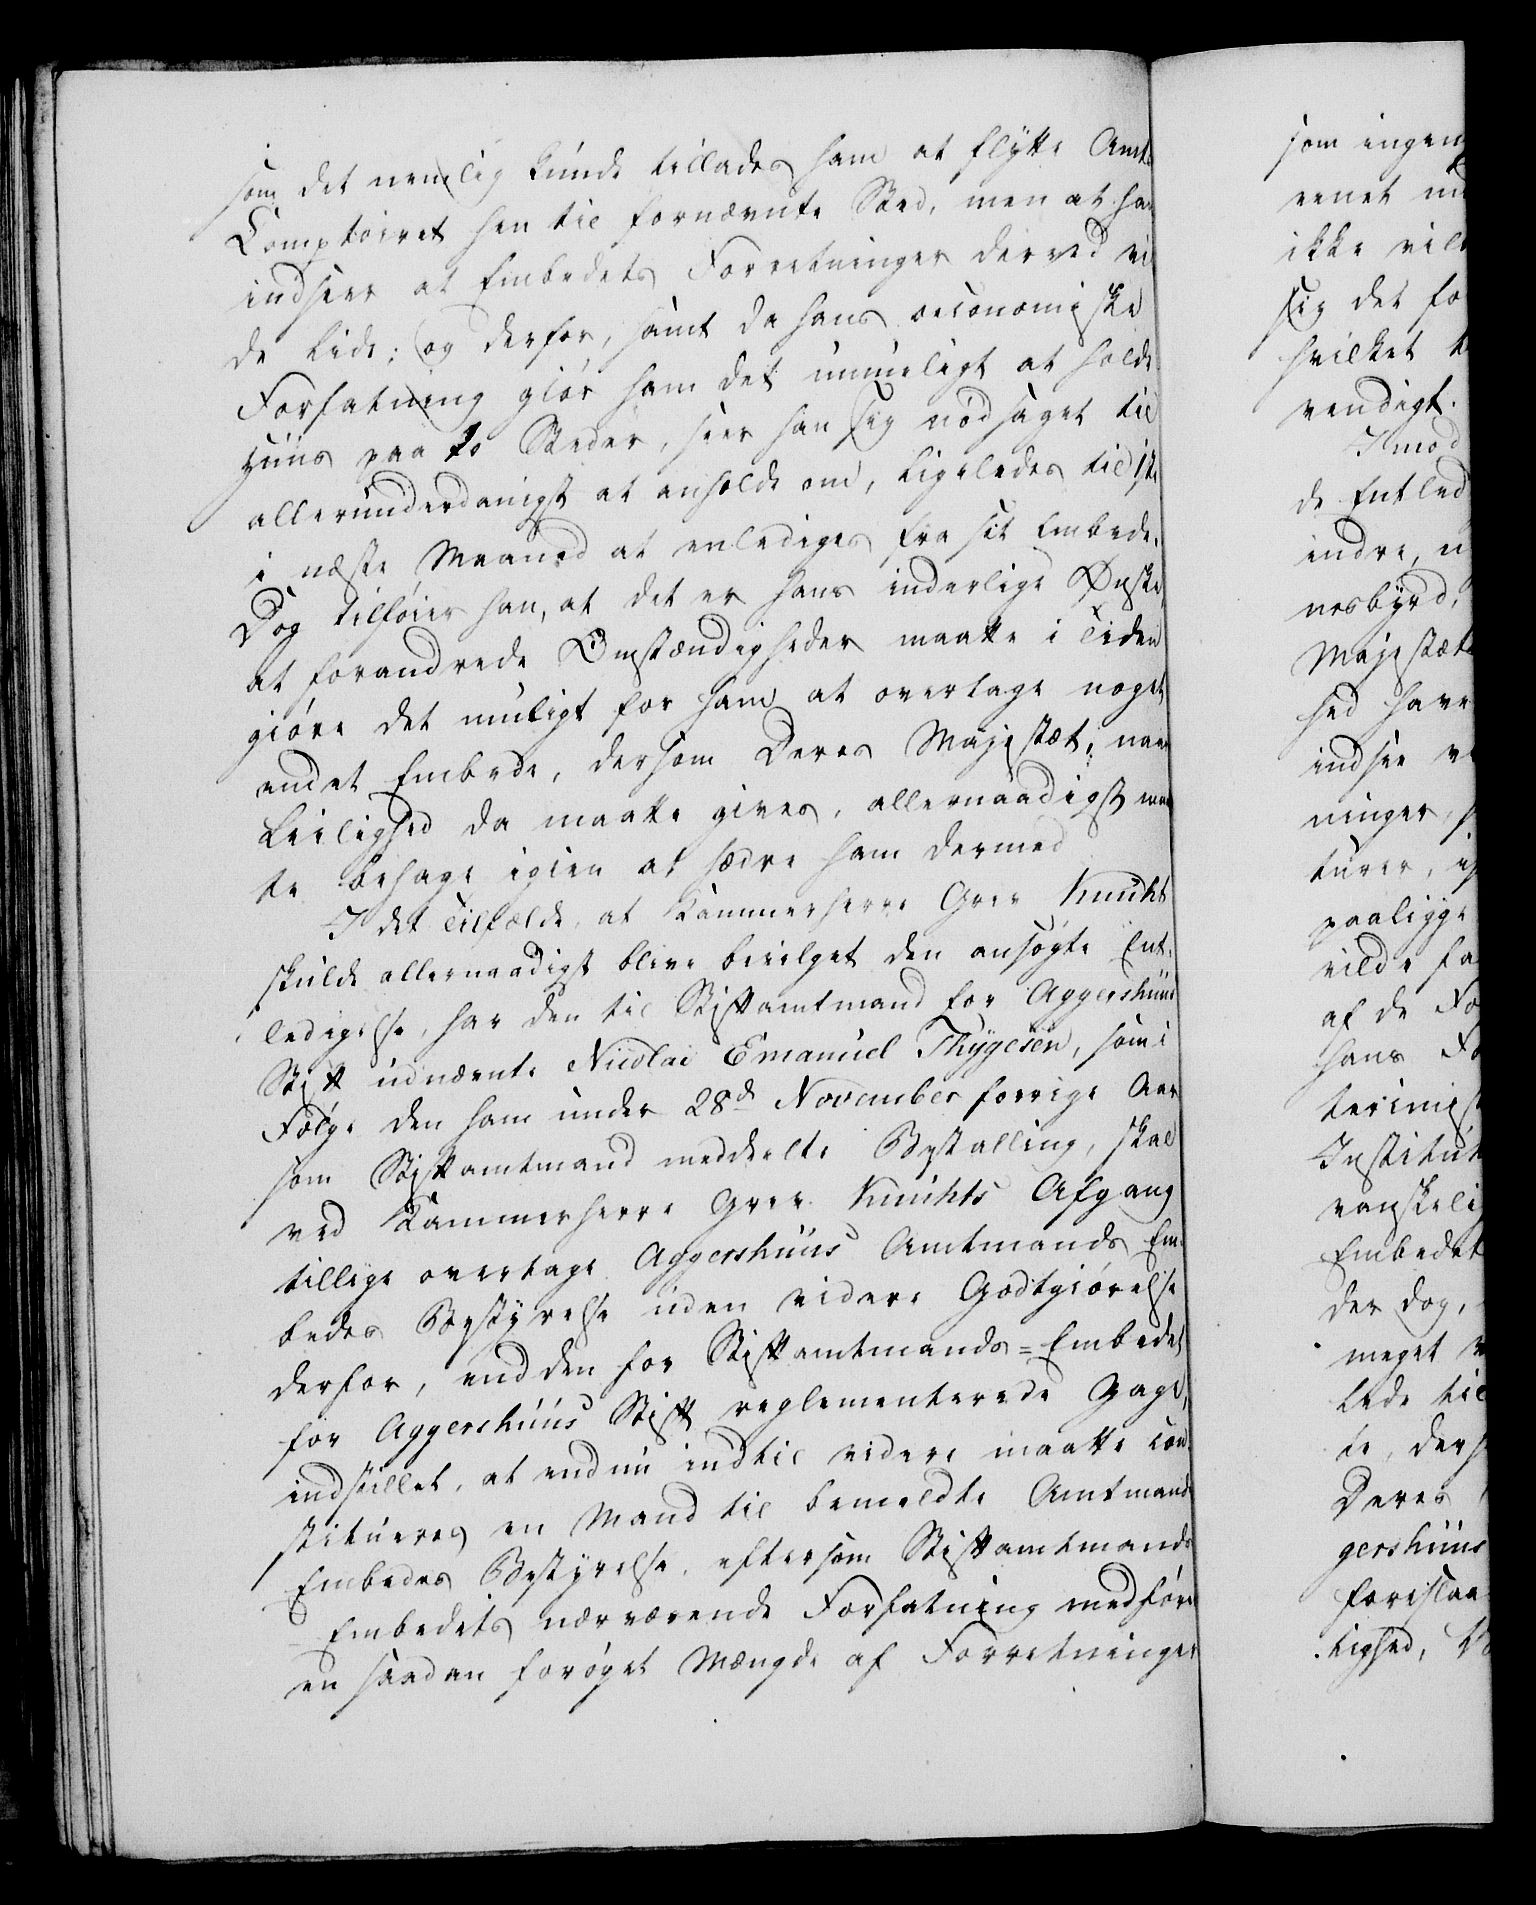 som det nemlig kunde tillades ham at flytte Amt-
Comptoiret hen til fornævnte Sted, men at han
indseer at Embedets Forretninger derved vil-
de lide; og derfor, samt da hans oeconomiske
Forfatning giør ham det umueligt at holde
Huus paa to Steder, seer han sig nødsaget til
allerunderdanigst at anholde om, ligeledes til 1ste
i næste Maaned at enlediges fra sit Embede.
Dog tilføier han, at det er hans inderlige Ønske,
at forandrede Omstændigheder maatte i Tiden
giøre det muligt for ham at overtage noget
andet Embede, dersom Deres Majestæt, naar
Leilighed da maatte gives, allernaadigst maat-
te behage igien at hædre ham dermed
I det Tilfælde, at Kammerherre Grev Knuht
skulde allernaadigst blive bevilget den ansøgte Ent-
ledigelse, har den til Stiftamtmand for Aggershuus
Stift udnævnte Nicolai Emanuel Thygesen, som i
Følge den ham under 28de November forrige Aar
som Stiftamtmand meddeelte Bestalling, skal
ved Kammerherre Grev Knuhts Afgang
tillige overtage Aggershuus Amtmands Em-
bedes Bestyrelse uden videre Godtgiørelse
derfor, end den for Stiftamtmands-Embedet
for Aggershuus Stift reglementerede Gage,
indstillet, at endnu indtil videre maatte con-
stitueres en Mand til bemeldte Amtmands
Embedes Bestyrelse, eftersom Stiftamtmands
Embedets nærværende Forfatning medføre
en saadan forøget Mængde af Forretninger
som ingen
eenet
ikke vil
sig det fo
hvilket
vendigt.
Imod
de Entled
indre,
nesbyrd,
Majestæt
hed have
indsee
ninger,
turer,
paaligge
vilde fa
af de Fo
hans Fo
terimist
Institut
vanskelig
Embedet
der dog,
meget
lede til
te, ders
Deres
gershuus
foreslaa
lighed,